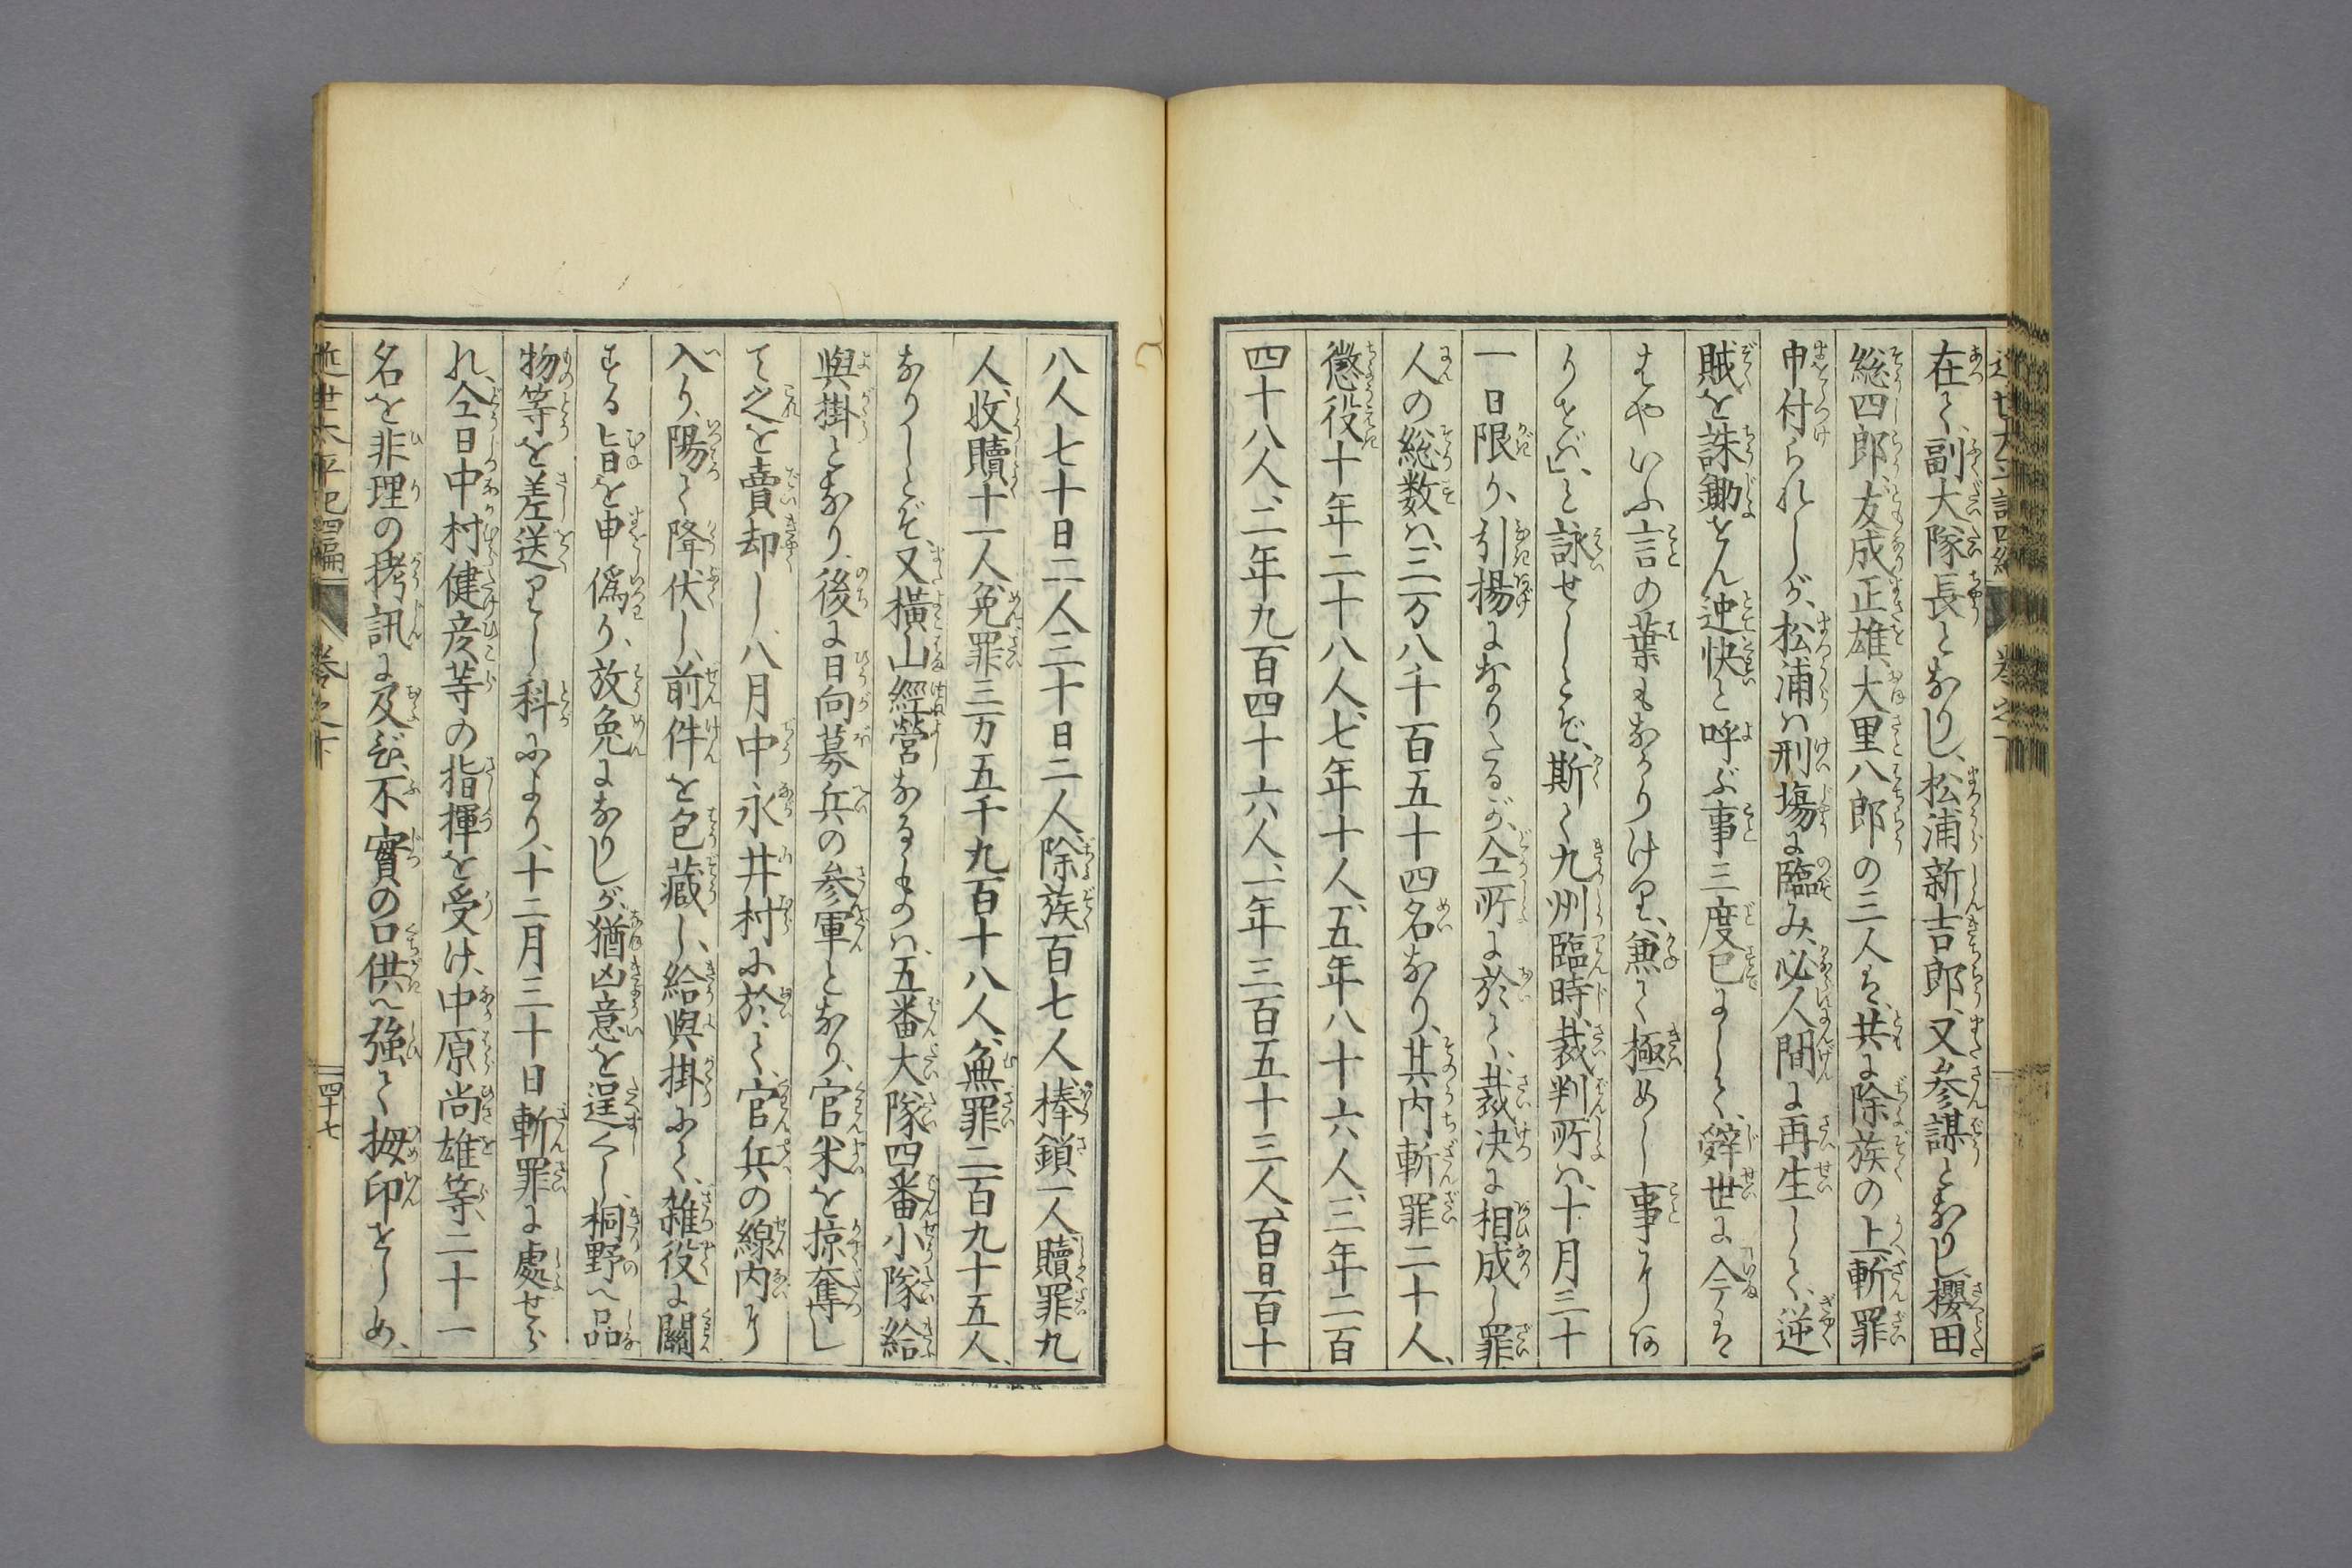 在て、副大隊長となりし、松浦新吉郎、又参謀となりし、櫻田
総四郎、友成正雄、大里八郎の三人も、共に除族の上、斬罪
申付られしが、松浦ハ刑塲に臨み、必人間に再生して、逆
賊を誅鋤せん、迚快と呼ぶ事三度已にして、辞世に「今も
はやいふ言の葉もなかりけり、兼て極めし事にしあ
りせば」、と詠せしとぞ、斯て九州臨時裁判所ハ、十月三十
一日限り、引揚になりたるが、仝所に於て、裁決に相成し罪
人の総数ハ、三万八千百五十四名なり、其内斬罪二十人、
懲役十年二十八人、七年十人、五年八十六人、三年二百
四十八人、二年九百四十六人、一年三百五十三人、百日百十
八人七十日二人三十日二人除族百七人、棒鎖一人、贖罪九
人、收贖十一人、免罪三万五千九百十八人、無罪二百九十五人、
なりしとぞ、又横山經營なるものハ、五番大隊四番小隊給
與掛となり、後に日向募兵の参軍となり、官米を掠奪し
て之を賣却し、八月中永井村に於て、官兵の線内に
入り、陽て降伏し、前件を包藏し、給與掛にて、雑役に關
する旨を申偽り、放免になりしが、猶凶意を逞くし、桐野へ品
物等を差送りし科により、十二月三十日斬罪に處せら
れ、仝日中村健彦等の指揮を受け、中原尚雄等、二十一
名を非理の拷訊に及び、不實の口供へ強て拇印をしめ、
近世太平記四編　巻之下　四十七